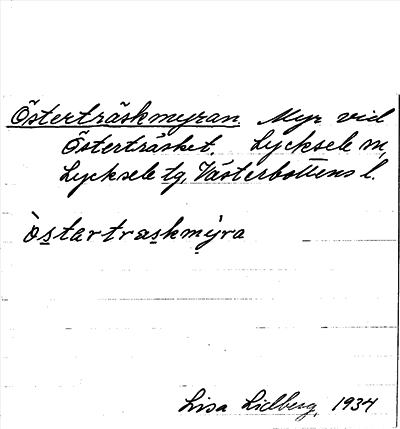 Österträskmyran. Myr vid
Österträsket. Lycksele m,
Lycksele tg, Västerbottens l.
òstartraskmýra
Lisa Lidberg, 1934